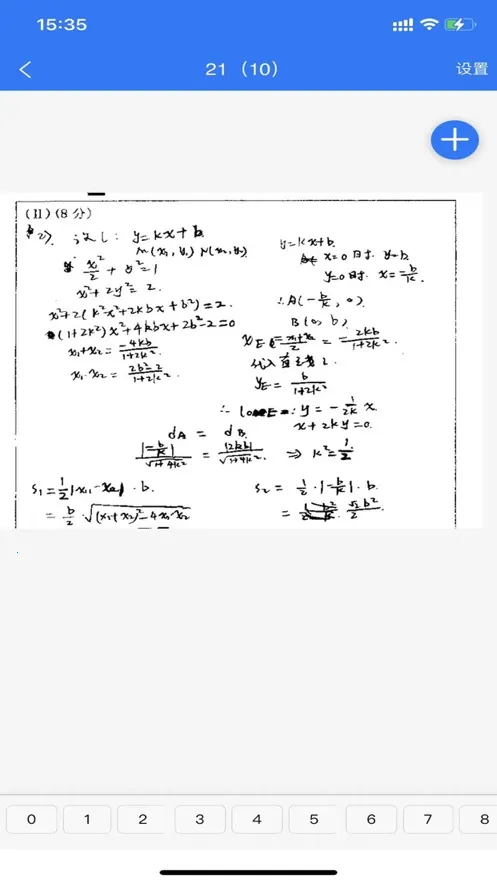 15:35
21 (10)
设置
(II) (8分)
(2) 设 l: y=kx+b.
M(x₁, y₁) N(x₂, y₂)
x²/2 + y²=1
x²+2y²=2.
x²+2(k²x²+2kbx+b²)=2.
(1+2k²)x²+4kbx+2b²-2=0
x₁+x₂ = -4kb/1+2k².
x₁·x₂ = 2b²-2/1+2k².
y=kx+b.
x=0时. y=b.
y=0时. x=-b/k.
∴A(-b/k, 0)
B(0, b)
x_E = x₁+x₂/2 = -2kb/1+2k².
代入直线 l.
y_E = b/1+2k²
∴ l_OE: y = -1/2k x.
x+2ky=0.
d_A = d_B.
|-b/k|/√1+4k² = |2kb|/√1+4k² ⇒ k²=1/2
S₁=1/2|x₁-x₂|·b.
= b/2·√(x₁+x₂)²-4x₁x₂
S₂ = 1/2·|-b/k|·b.
= √2b²/2
0 1 2 3 4 5 6 7 8